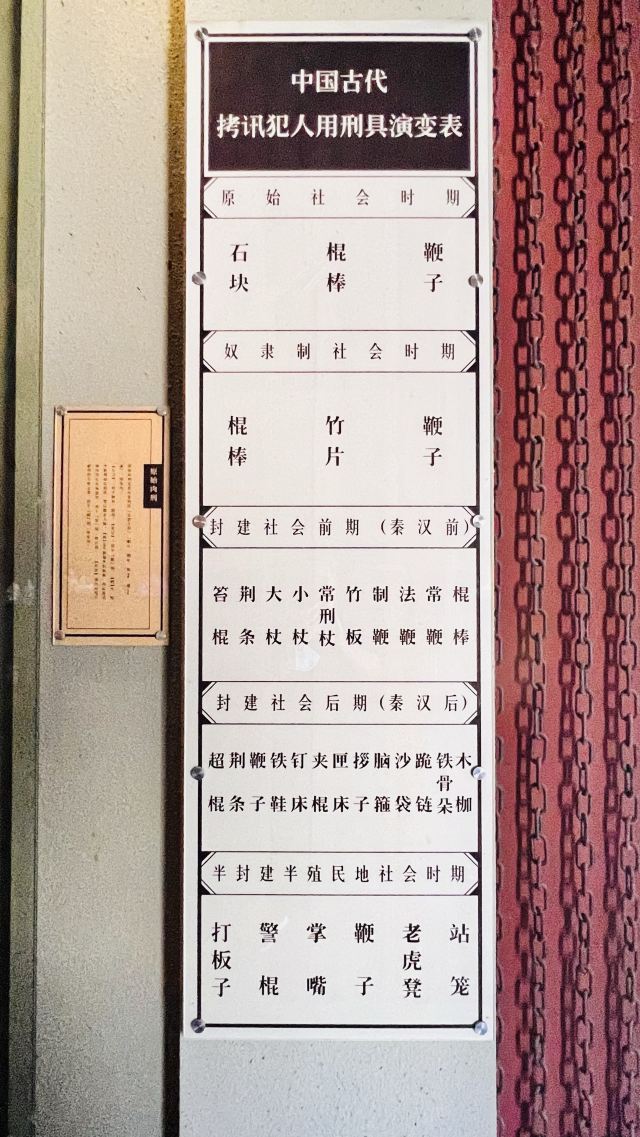 中国古代
拷讯犯人用刑具演变表
原始社会时期
石块
棍棒
鞭子
奴隶制社会时期
棍棒
竹片
鞭子
封建社会前期(秦汉前)
笞棍
荆条
大杖
小杖
常刑杖
竹板
制鞭
法鞭
常鞭
棍棒
封建社会后期(秦汉后)
超棍
荆条
鞭子
铁鞋
钉床
夹棍
匣床
拶子
脑箍
沙袋
跪链
铁骨朵
木枷
半封建半殖民地社会时期
打板子
警棍
掌嘴
鞭子
老虎凳
站笼
原始肉刑